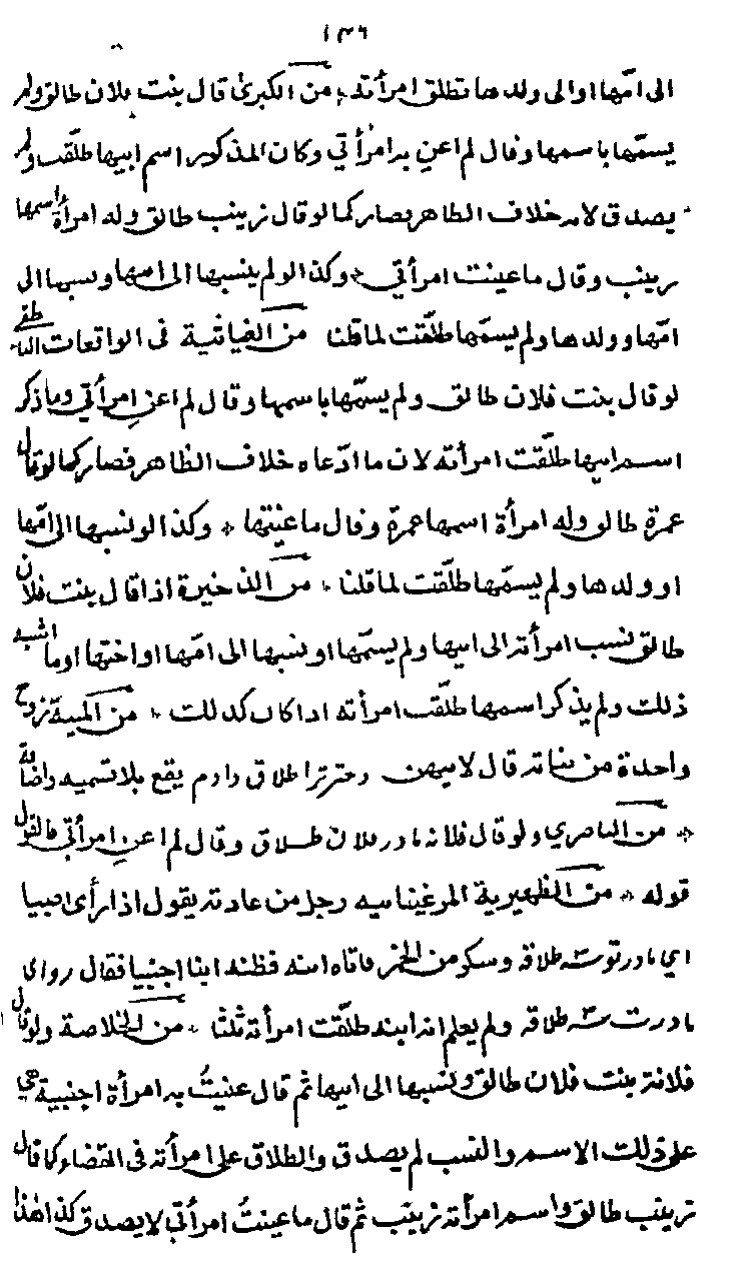 ١٣٦
الى امّها او الى ولدها تطلق امرأته ۰ من الكبرى قال بنت فلان طالق ولم
يسمّها باسمها وقال لم اعن به امرأتي وكان المذكور اسم ابيها طلّقت ولم
يصدق لانه خلاف الظاهر فصار كما لو قال زينب طالق وله امرأة اسمها
زينب وقال ما عينت امرأتي ۰ وكذا لو لم ينسبها الى امها ونسبها الى
امّها وولدها ولم يسمّها طلّقت لما قلنا من الغياثية فى الواقعات
لو قال بنت فلان طالق ولم يسمّها باسمها وقال لم اعن امرأتي وما ذكر
اسم ابيها طلّقت امرأته لان ما ادّعاه خلاف الظاهر فصار كما لو قال
عمرة طالق وله امرأة اسمها عمرة وقال ما عنيتها ۰ وكذا لو نسبها الى امّها
او ولدها ولم يسمّها طلّقت لما قلنا ۰ من الذخيرة اذا قال بنت فلان
طالق نسب امرأته الى ابيها ولم يسمّها او نسبها الى امّها او اختها او ما اشبه
ذلك ولم يذكر اسمها طلّقت امرأته اذا كان كذلك ۰ من المنية تزوج
واحدة من بناته قال لابيهن دخترترا طلاق دادم يقع بلا تسميه واضافة
۰ من الناصري ولو قال فلانه مادر فلان طلاق وقال لم اعن امرأتي فالقول
قوله ۰ من الظهيرية المرغينانيه رجل من عادته يقول اذا رأى صبيا
اي مادرتو سه طلاقه وسكر من الخمر فاتاه ابنه فظنه ابنا اجنبيا فقال رو اى
مادرت سه طلاقه ولم يعلم انه ابنه طلّقت امرأته ثلثا ۰ من الخلاصة ولو قال
فلانة بنت فلان طالق ونسبها الى ابيها ثم قال عنيتُ به امرأة اجنبية هي
على ذلك الاسم والنسب لم يصدق والطلاق على امرأته فى القضاء كما قال
زينب طالق واسم امرأته زينب ثم قال ما عينتُ امرأتي لا يصدق كذا هذا